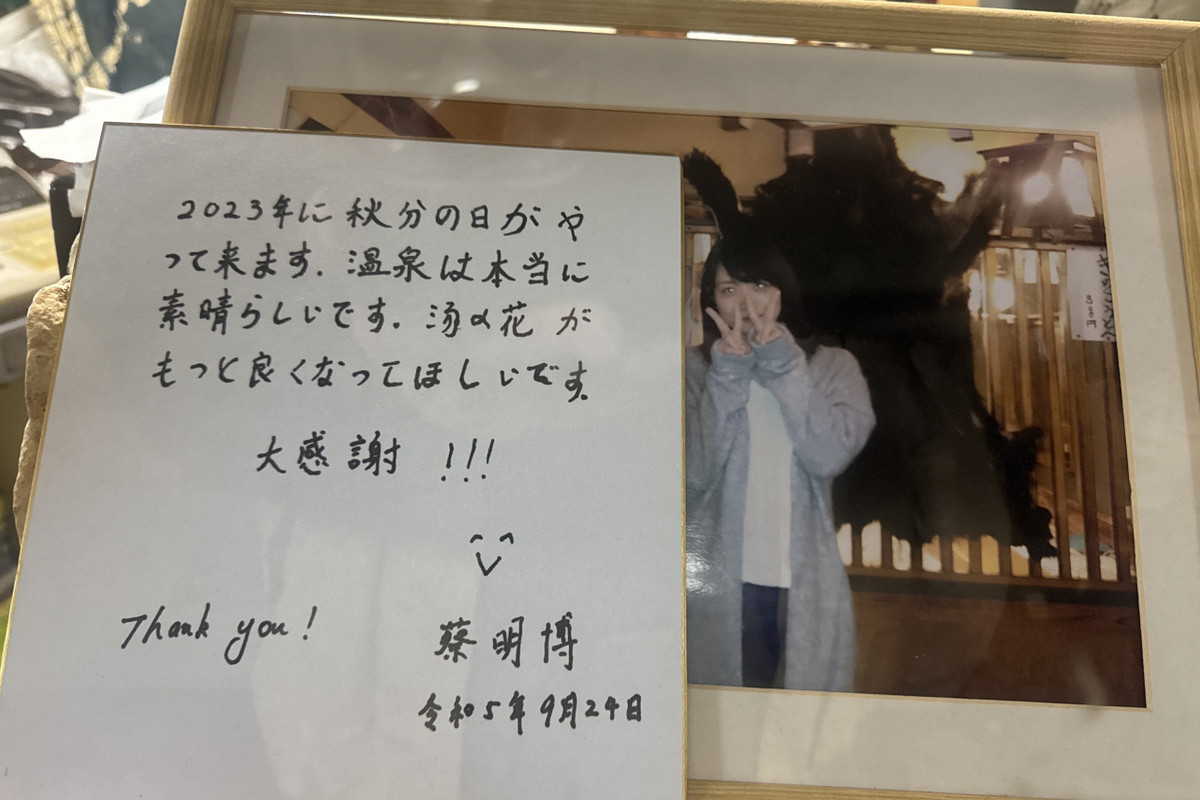 2023年に秋分の日がや
って来ます.温泉は本当に
素晴らしいです.湯の花が
もっと良くなってほしいです.
大感謝!!!
Thank you!
蔡明博
令和5年9月24日